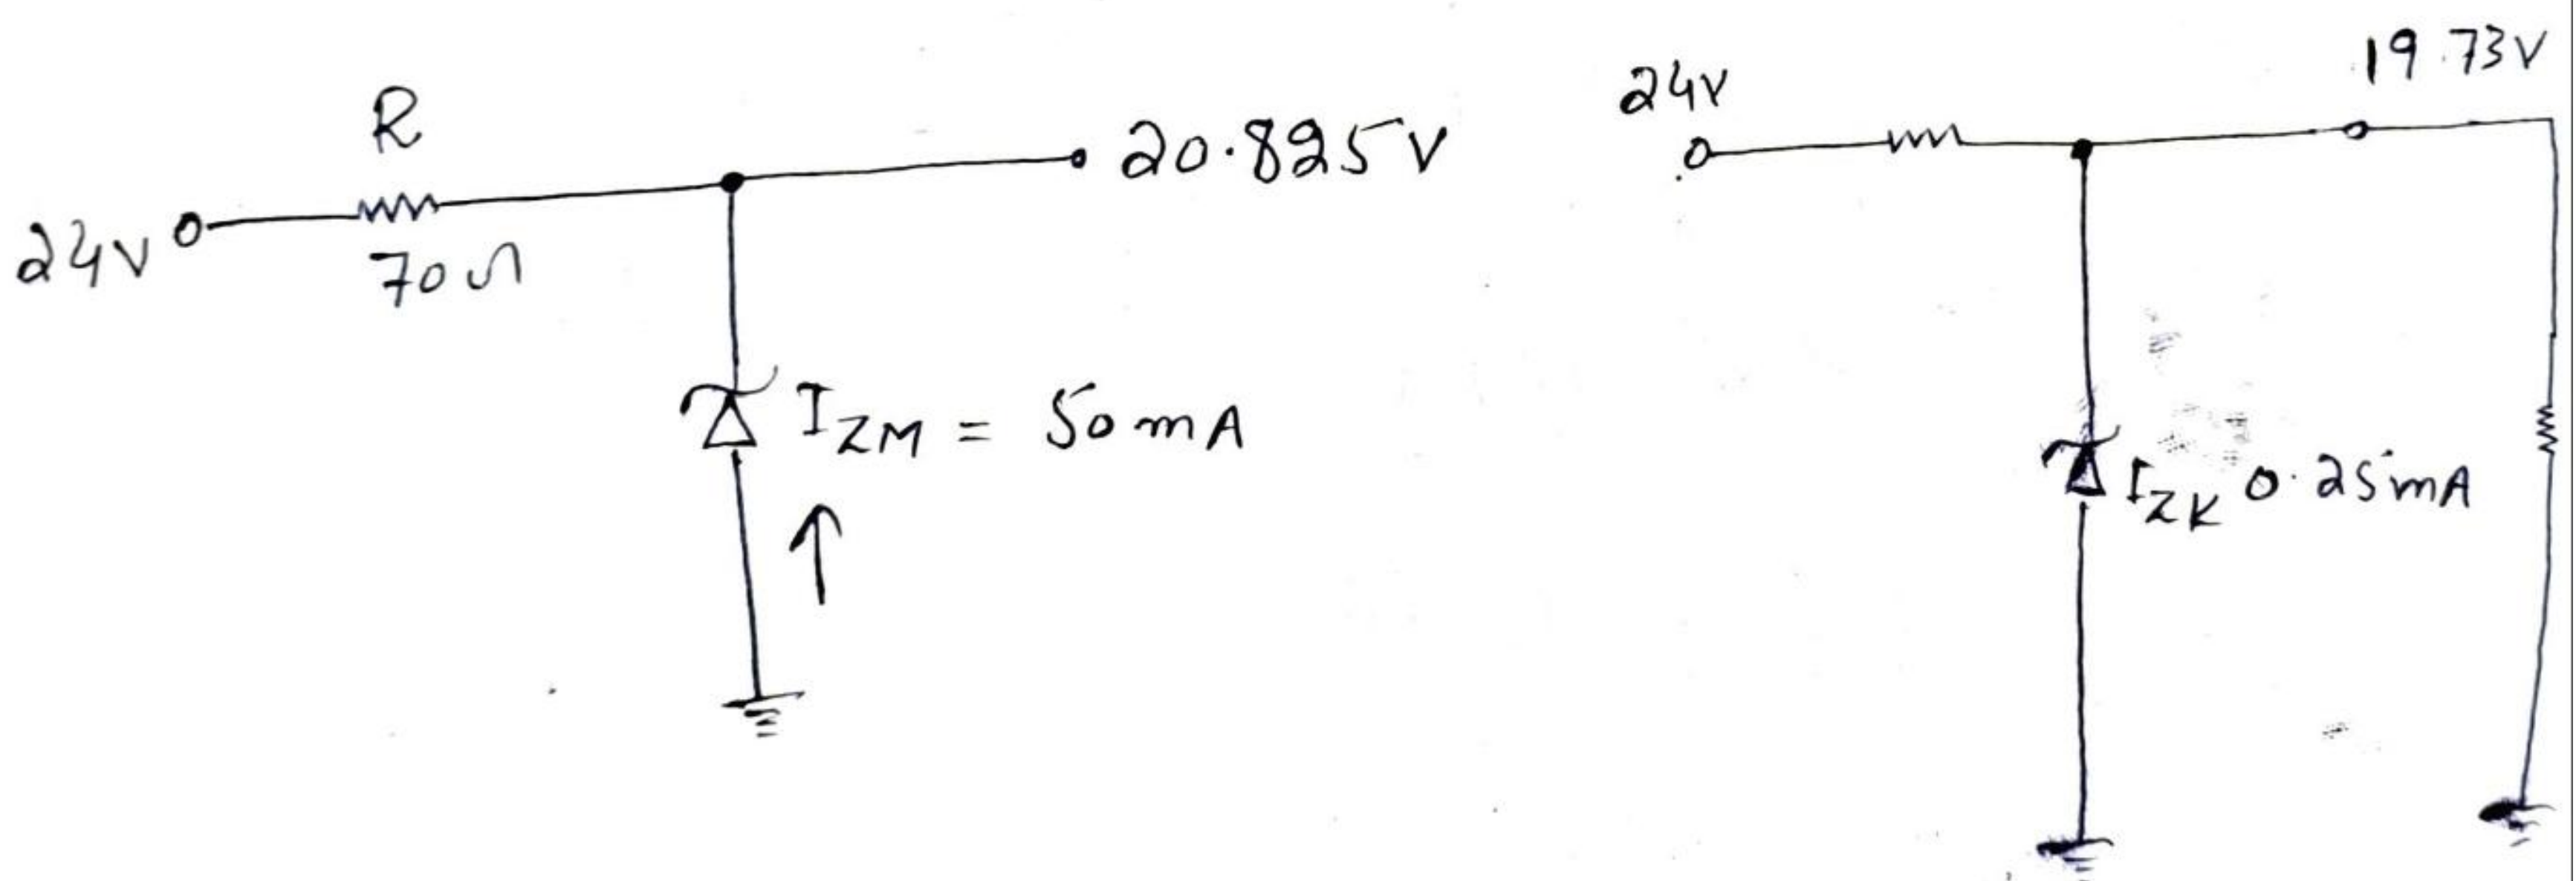 R
24V
70Ω
20.825V
I_ZM = 50mA
24V
19.73V
I_ZK 0.25mA